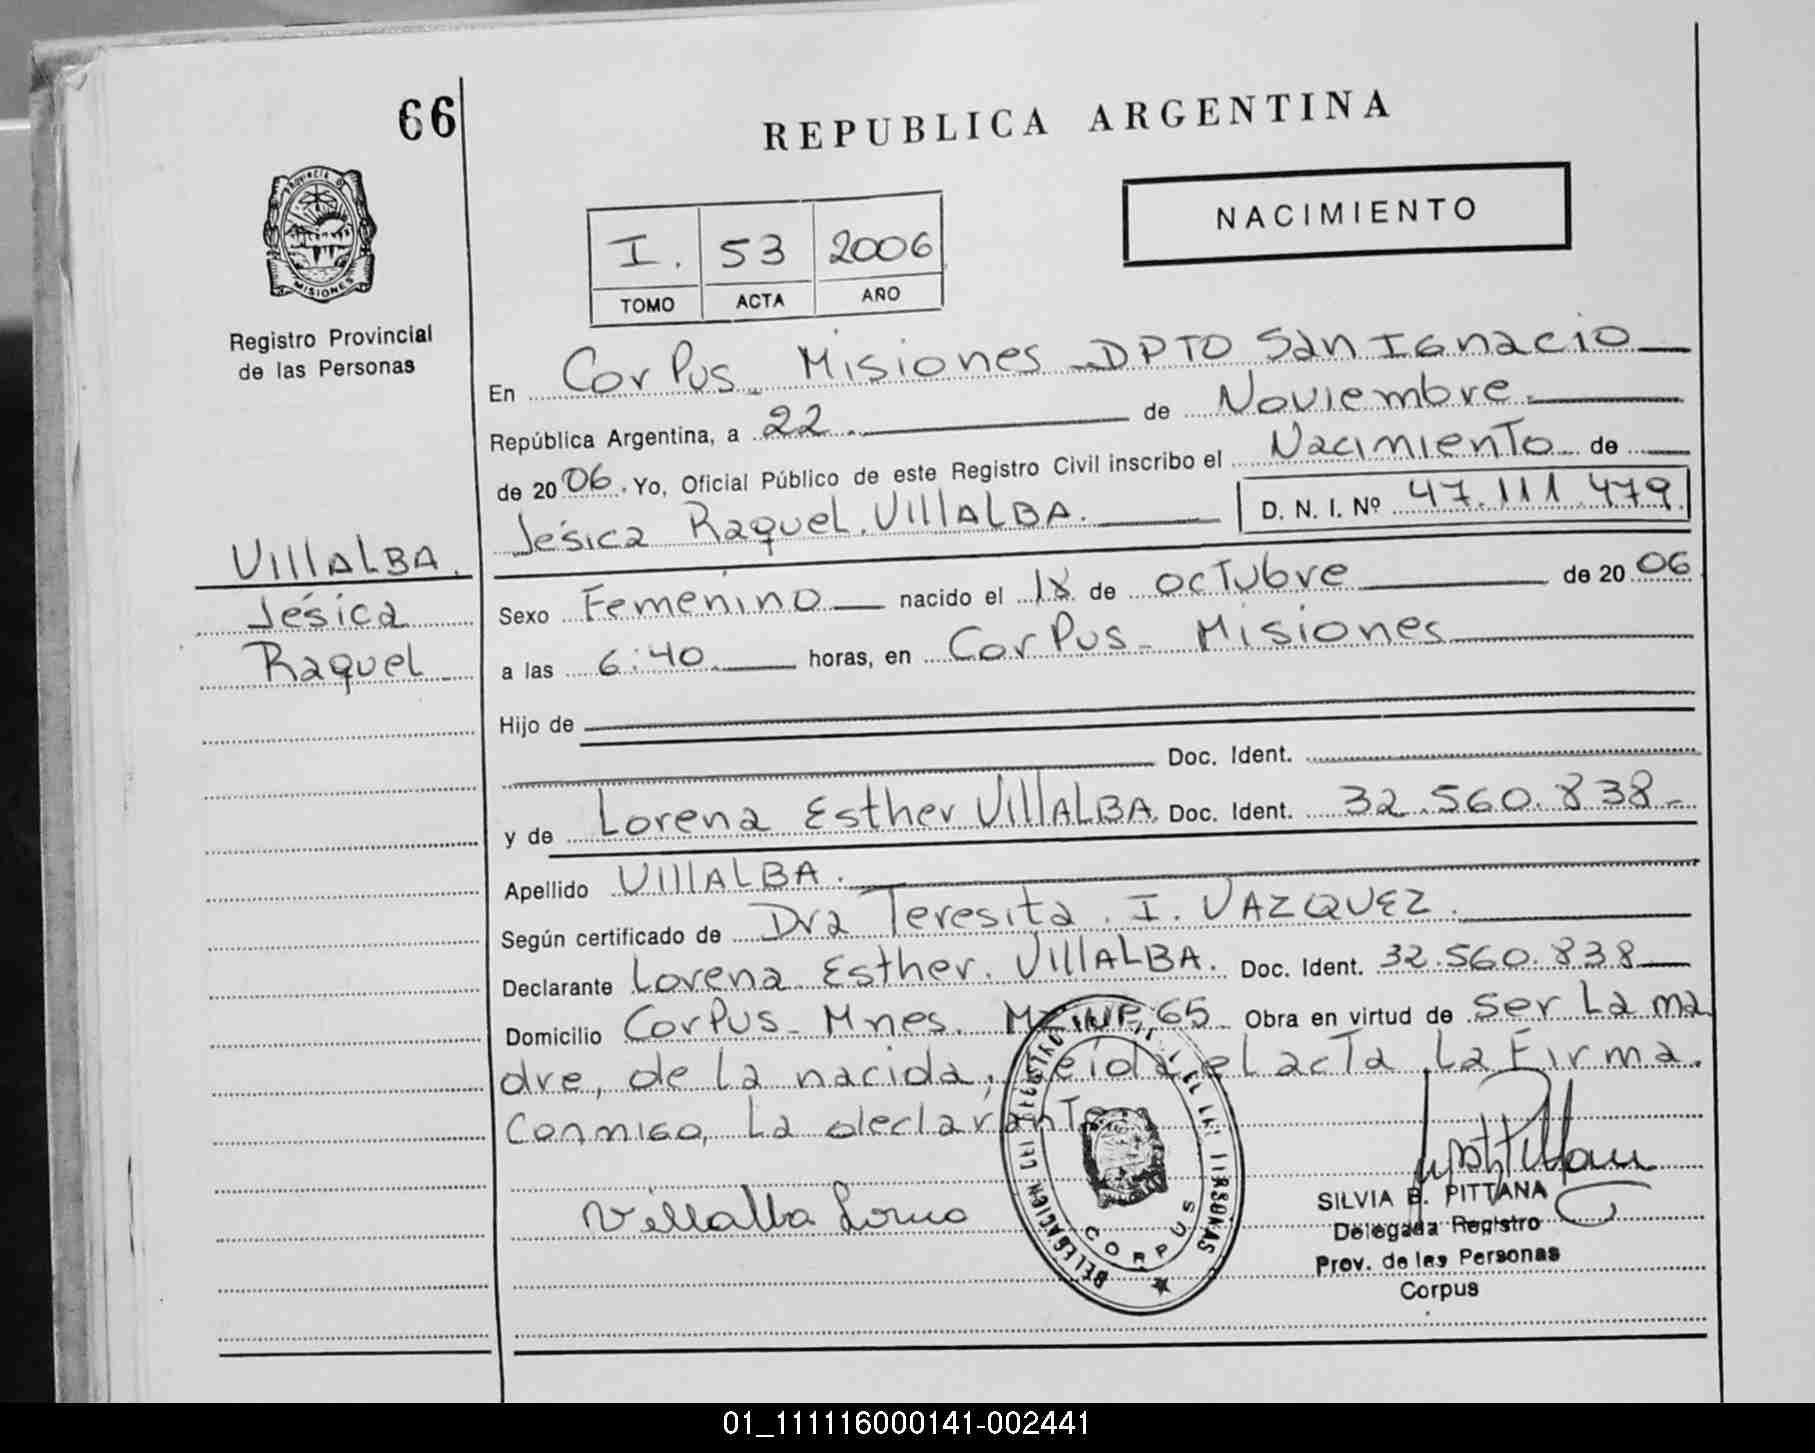 66
REPUBLICA ARGENTINA
PROVINCIA D
MISIONES
NACIMIENTO
I. 53 2006
TOMO ACTA AÑO
Registro Provincial
de las Personas
En Corpus Misiones DPTO San Ignacio
República Argentina, a 22 de Noviembre
de 2006. Yo, Oficial Público de este Registro Civil inscribo el Nacimiento de
Jésica Raquel VillALBA. D. N. I. Nº 47.111.479
VillALBA.
Jésica
Raquel
Sexo Femenino nacido el 18 de octubre de 2006
a las 6:40 horas, en Corpus - Misiones
Hijo de
Doc. Ident.
y de Lorena Esther VillALBA. Doc. Ident. 32.560.838-
Apellido VillALBA.
Según certificado de Dra Teresita. I. VAZQUEZ.
Declarante Lorena Esther. VillALBA. Doc. Ident. 32.560.838
Domicilio Corpus - Mnes. 65 Obra en virtud de ser La ma
dre, de la nacida, leída el acta La Firma
Conmigo, La declarante
Villalba
DELEGACION DEL REGISTRO DE LAS PERSONAS
CORPUS
SILVIA B. PITTANA
Delegada Registro
Prov. de las Personas
Corpus
01_111116000141-002441